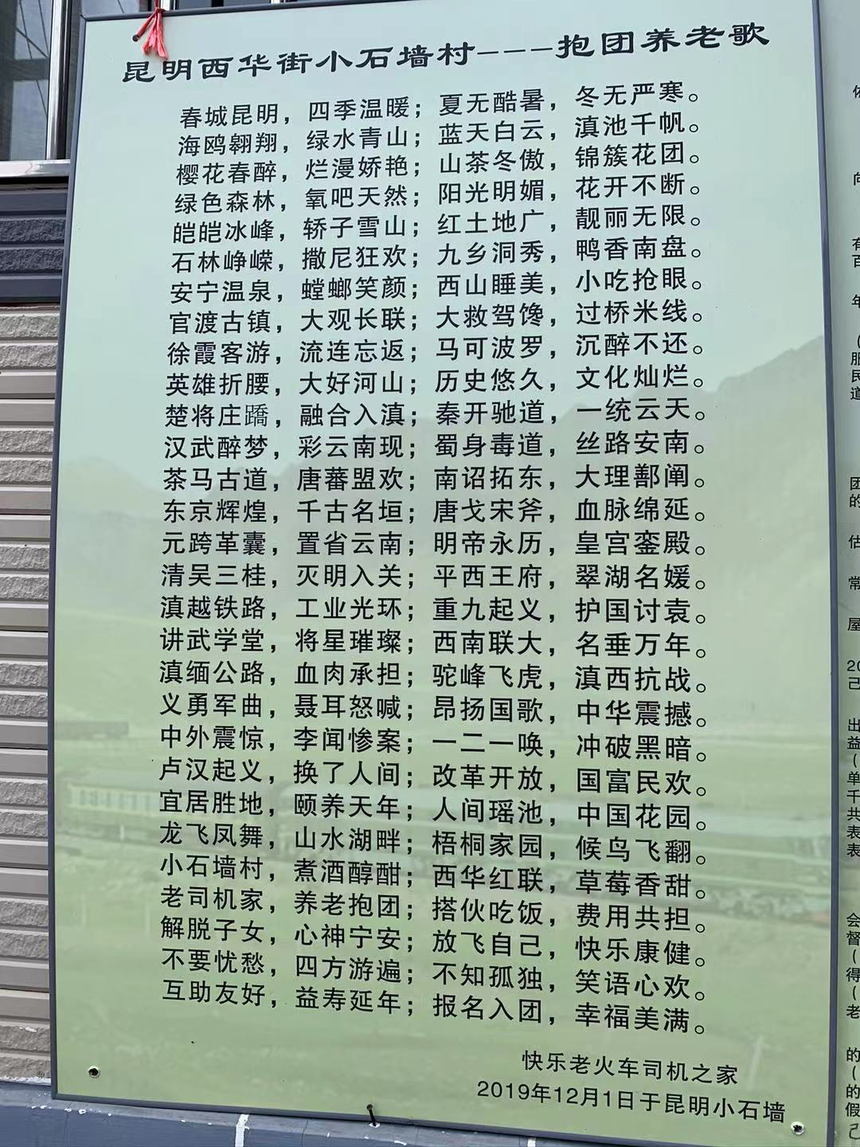 昆明西华街小石墙村---抱团养老歌
春城昆明，四季温暖；夏无酷暑，冬无严寒。
海鸥翱翔，绿水青山；蓝天白云，滇池千帆。
樱花春醉，烂漫娇艳；山茶冬傲，锦簇花团。
绿色森林，氧吧天然；阳光明媚，花开不断。
皑皑冰峰，轿子雪山；红土地广，靓丽无限。
石林峥嵘，撒尼狂欢；九乡洞秀，鸭香南盘。
安宁温泉，螳螂笑颜；西山睡美，小吃抢眼。
官渡古镇，大观长联；大救驾馋，过桥米线。
徐霞客游，流连忘返；马可波罗，沉醉不还。
英雄折腰，大好河山；历史悠久，文化灿烂。
楚将庄蹻，融合入滇；秦开驰道，一统云天。
汉武醉梦，彩云南现；蜀身毒道，丝路安南。
茶马古道，唐蕃盟欢；南诏拓东，大理鄯阐。
东京辉煌，千古名垣；唐戈宋斧，血脉绵延。
元跨革囊，置省云南；明帝永历，皇宫銮殿。
清吴三桂，灭明入关；平西王府，翠湖名媛。
滇越铁路，工业光环；重九起义，护国讨袁。
讲武学堂，将星璀璨；西南联大，名垂万年。
滇缅公路，血肉承担；驼峰飞虎，滇西抗战。
义勇军曲，聂耳怒喊；昂扬国歌，中华震撼。
中外震惊，李闻惨案；一二一唤，冲破黑暗。
卢汉起义，换了人间；改革开放，国富民欢。
宜居胜地，颐养天年；人间瑶池，中国花园。
龙飞凤舞，山水湖畔；梧桐家园，候鸟飞翻。
小石墙村，煮酒醇酣；西华红联，草莓香甜。
老司机家，养老抱团；搭伙吃饭，费用共担。
解脱子女，心神宁安；放飞自己，快乐康健。
不要忧愁，四方游遍；不知孤独，笑语心欢。
互助友好，益寿延年；报名入团，幸福美满。
快乐老火车司机之家
2019年12月1日于昆明小石墙